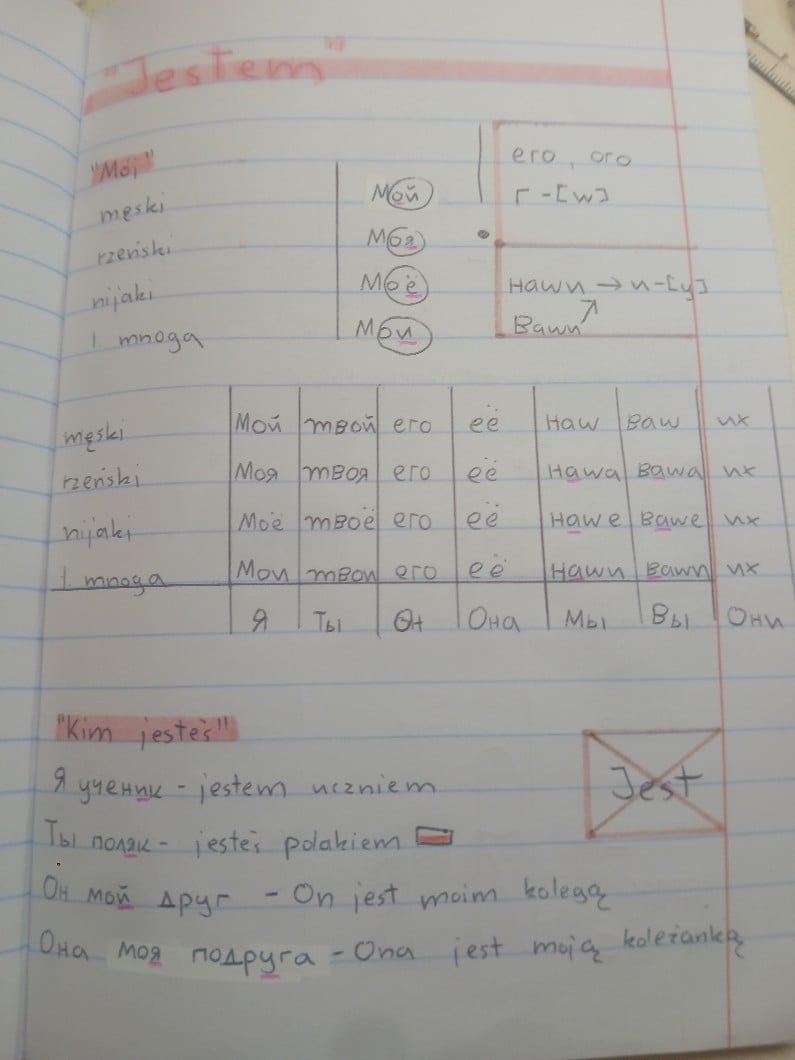 "Jestem"
"Mój"
męski Мой
rzeński Моя
nijaki Моё
l. mnoga Мои
его, ого
г - [w]
Наши → и - [y]
Ваши
męski Мой твой его её Наш Ваш их
rzeński Моя твоя его её Наша Ваша их
nijaki Моё твоё его её Наше Ваше их
l. mnoga Мои твои его её Наши Ваши их
Я Ты Он Она Мы Вы Они
"Kim jesteś"
Jest
Я ученик - jestem uczniem
Ты поляк - jesteś polakiem
Он мой друг - On jest moim kolegą
Она моя подруга - Ona jest moją koleżanką